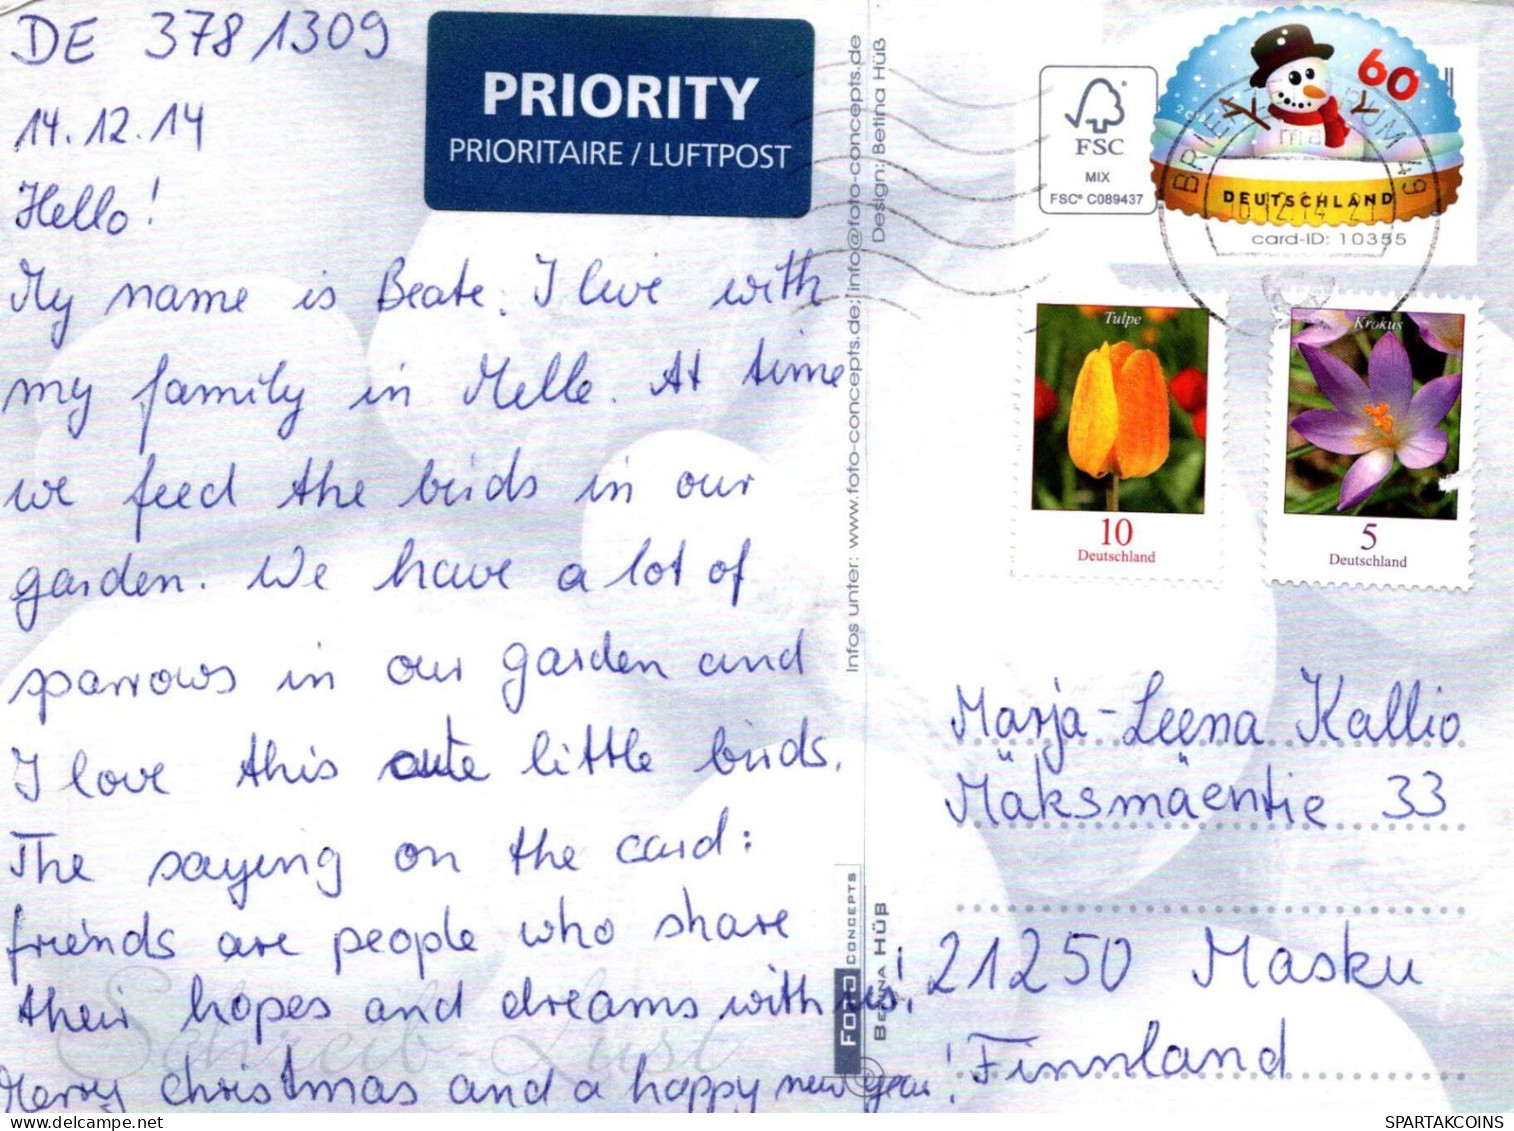 DE 3781309
14.12.14
Hello!
My name is Beate. I live with
my family in Melle. At time
we feed the birds in our
garden. We have a lot of
sparrows in our garden and
I love this cute little birds.
The saying on the card:
friends are people who share
their hopes and dreams with us!
Merry Christmas and a happy new year!
Schreib-Lust
PRIORITY
PRIORITAIRE / LUFTPOST
Infos unter: www.foto-concepts.de; info@foto-concepts.de
Design: Betina Hüß
FOTO CONCEPTS
BETINA HÜß
FSC
MIX
FSC® C089437
60
DEUTSCHLAND
card-ID: 10355
BRIEFZENTRUM 49
ma
Tulpe
10
Deutschland
Krokus
5
Deutschland
Marja-Leena Kallio
Mäksmäentie 33
21250 Masku
Finnland
SPARTAKCOINS